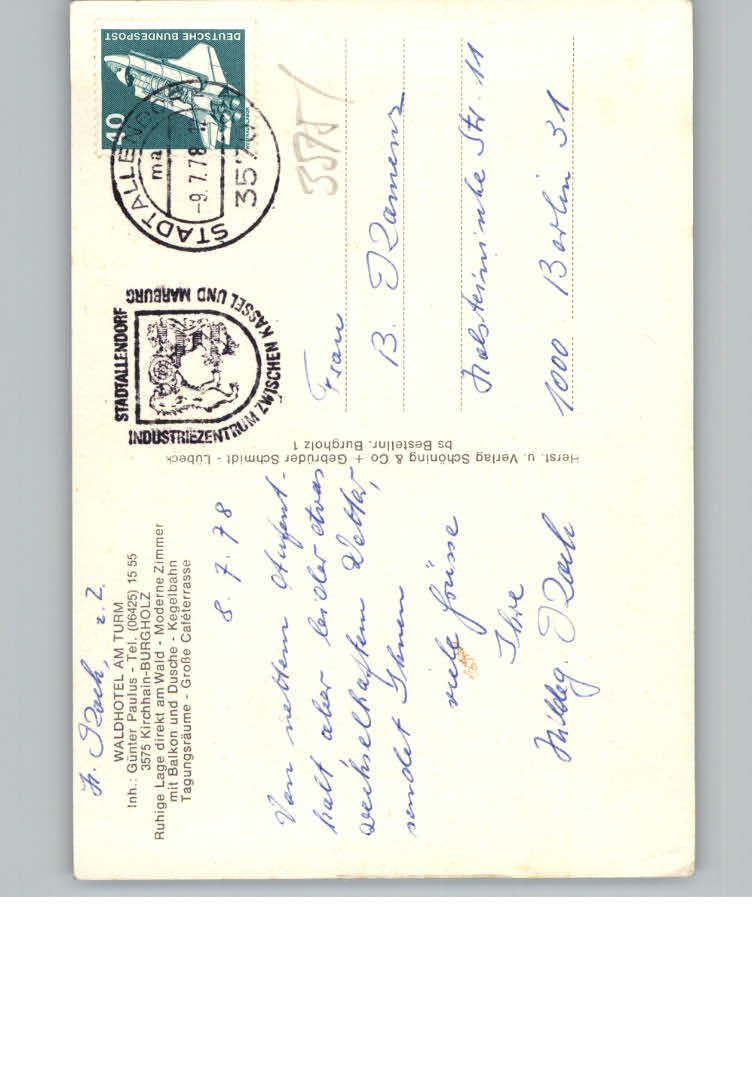 H. Koch, z. Z.
WALDHOTEL AM TURM
Inh.: Günter Paulus - Tel. (06425) 15 55
3575 Kirchhain-BURGHOLZ
Ruhige Lage direkt am Wald - Moderne Zimmer
mit Balkon und Dusche - Kegelbahn
Tagungsräume - Große Caféterrasse
8. 7. 78
Von nettem Aufent-
halt aber leider etwas
wechselhaftem Wetter,
sendet Ihnen
viele Grüsse
Ihre
Hildeg. Koch
Herst. u. Verlag Schöning & Co + Gebrüder Schmidt - Lübeck
bs Bestellnr. Burgholz 1
STADTALLENDORF
INDUSTRIEZENTRUM ZWISCHEN KASSEL UND MARBURG
DEUTSCHE BUNDESPOST
40
STADTALLENDORF
ma
-9.7.78
357
3575
Frau
B. Kamenz
Holsteinische Str. 11
1000 Berlin 31